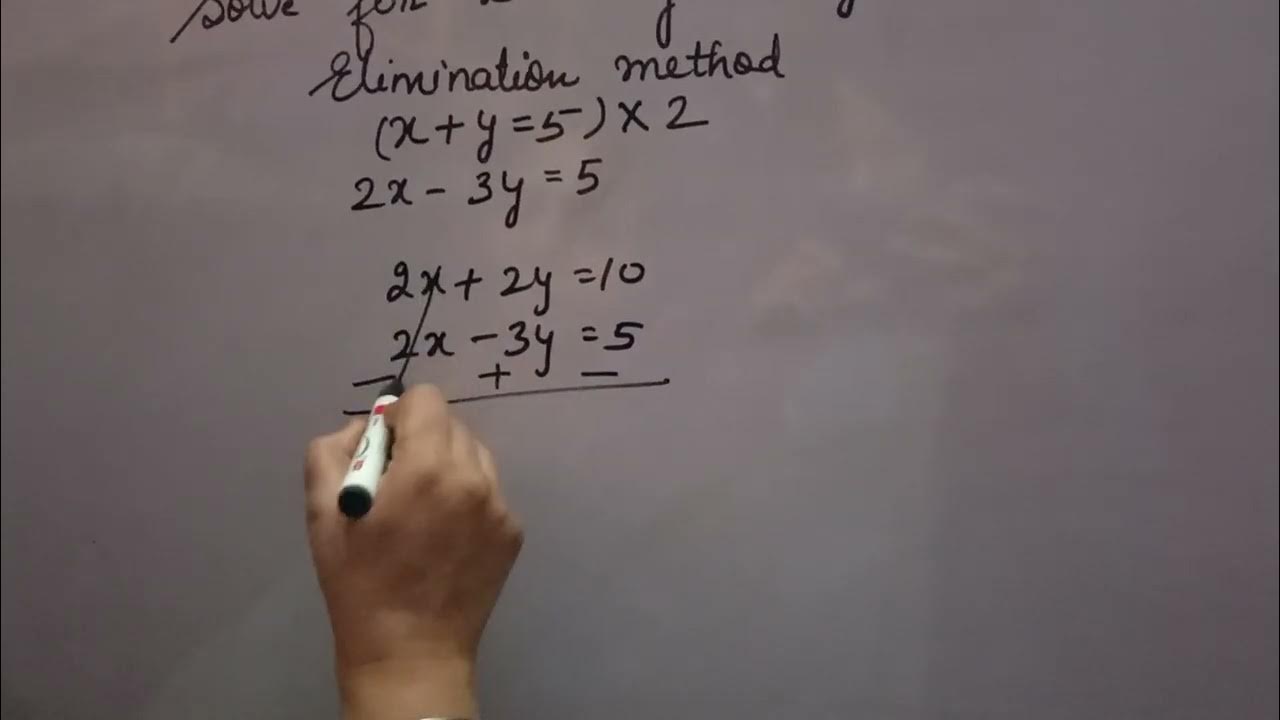 Solve for
Elimination method
(x + y = 5) × 2
2x - 3y = 5
2x + 2y = 10
2x - 3y = 5
- + -